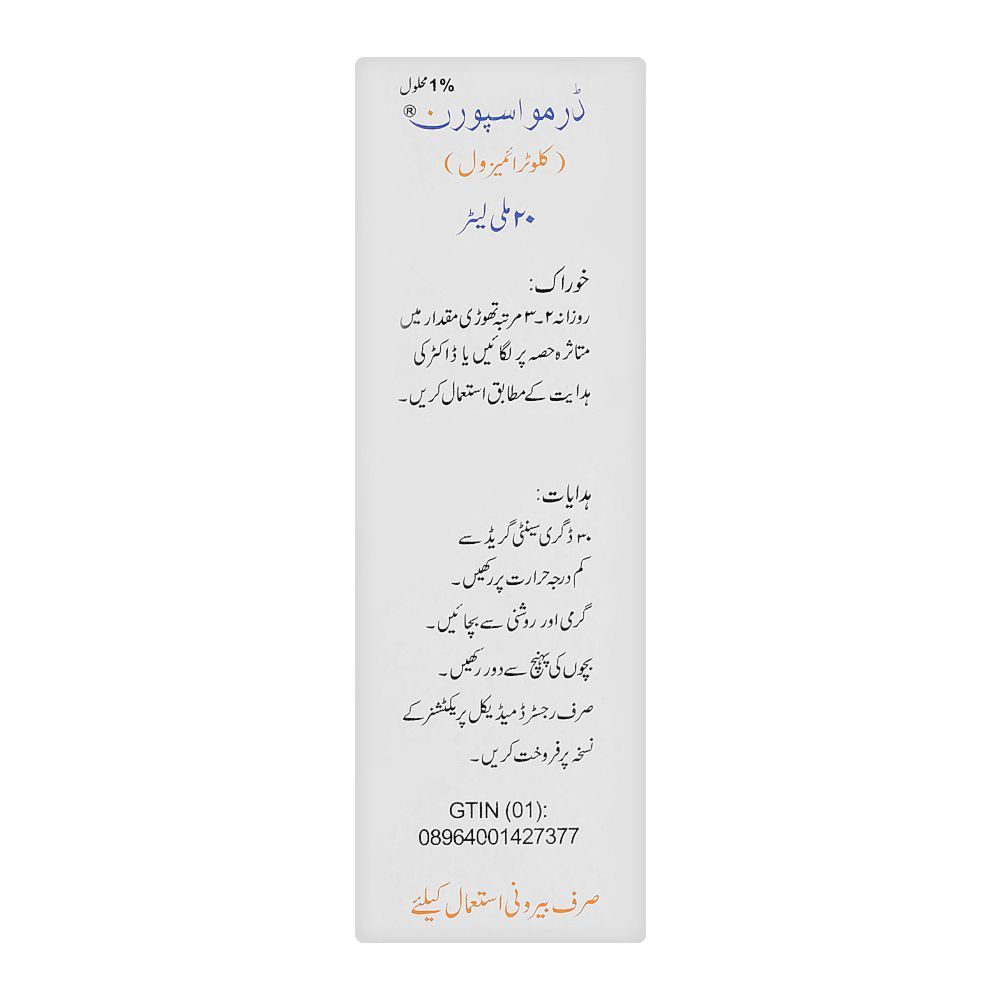 1% محلول
ڈرمواسپورن®
(کلوٹرائمیزول)
۲۰ ملی لیٹر
خوراک:
روزانہ ۲۔۳ مرتبہ تھوڑی مقدار میں
متاثرہ حصہ پر لگائیں یا ڈاکٹر کی
ہدایت کے مطابق استعمال کریں۔
ہدایات:
۳۰ ڈگری سینٹی گریڈ سے
کم درجہ حرارت پر رکھیں۔
گرمی اور روشنی سے بچائیں۔
بچوں کی پہنچ سے دور رکھیں۔
صرف رجسٹرڈ میڈیکل پریکٹشنر کے
نسخہ پر فروخت کریں۔
GTIN (01):
08964001427377
صرف بیرونی استعمال کیلئے